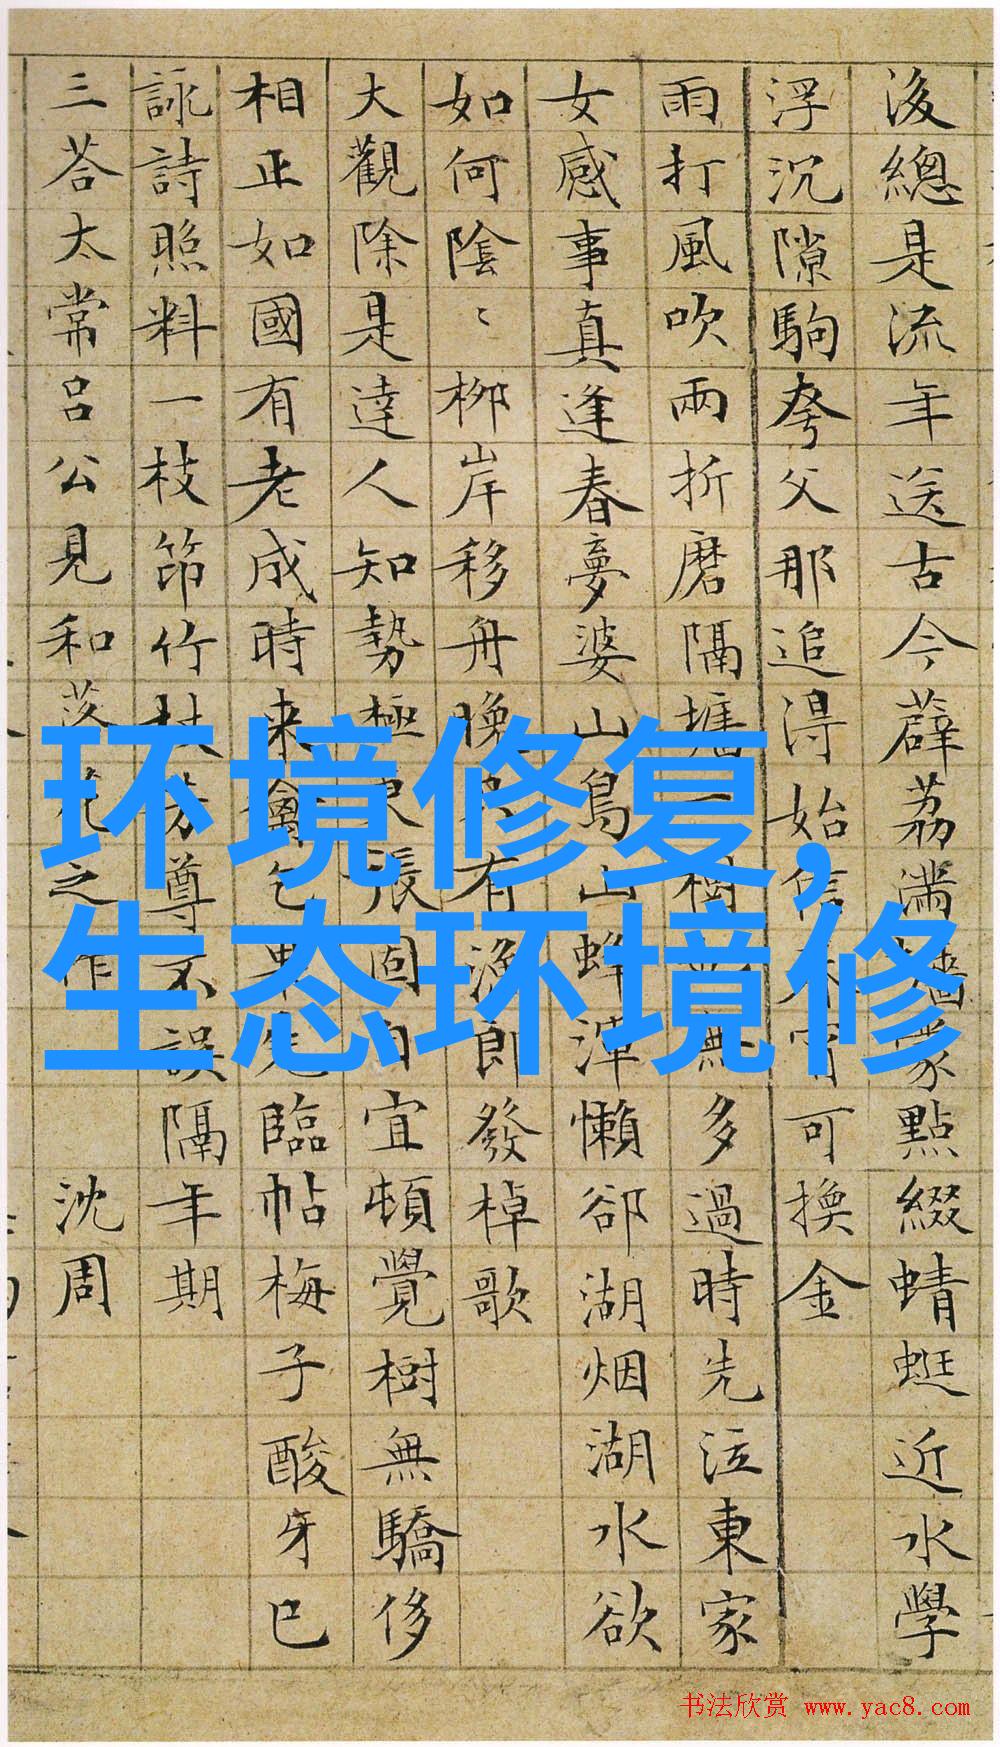 後總是流年送古今薜荔滿墻蒙點綴蜻蜓近水學
浮沉隙駒夸父那追得始信可換金
雨打風吹兩折磨隔墻一樹無多過時先泣東家
女感事真逢春夢婆山鳥山蜂渾懶卻湖烟湖水欲
如何陰〻柳岸移舟晚有漁郎發棹歌
大觀除是達人知勢極衰張固自宜頓覺樹無驕侈
相正如國有老成時来禽先臨帖梅子酸牙已
詠詩照料一枝笻竹杖芳尊不誤隔年期
三荅太常呂公見和落花之作 沈周
环境修复,
生态环境修
书法欣赏 www.yac8.com